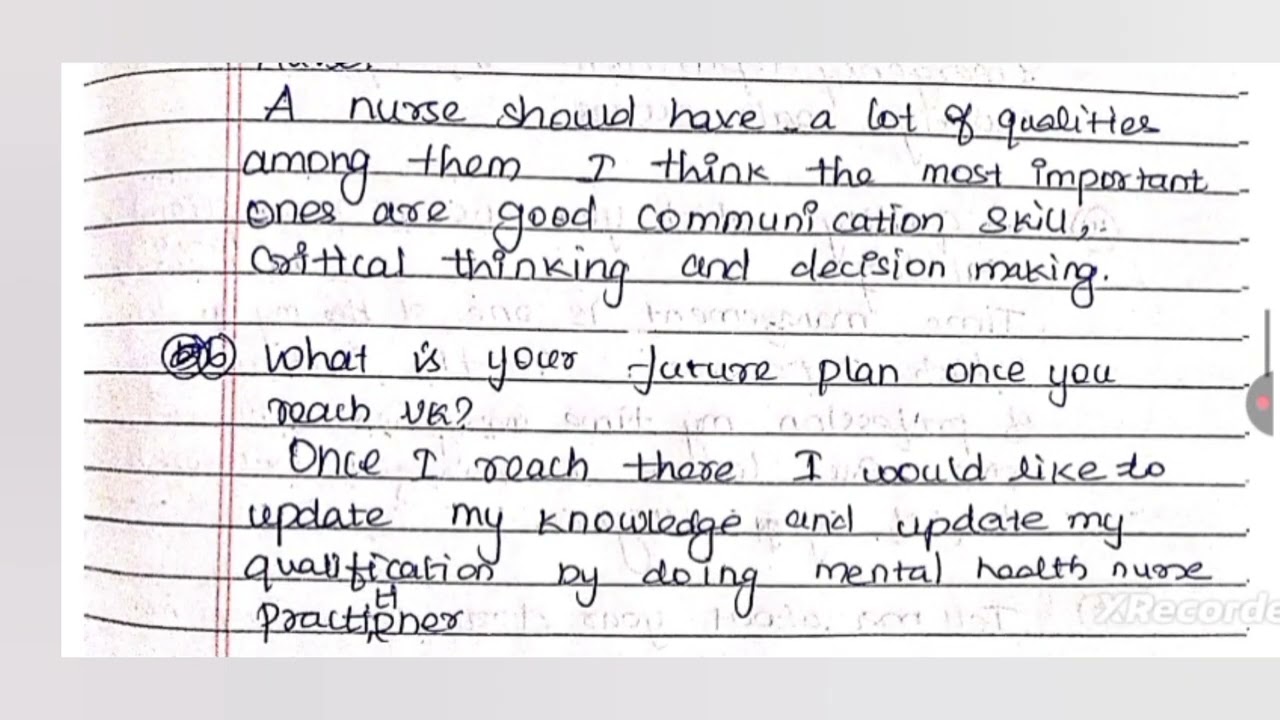 A nurse should have a lot of qualities
among them I think the most important
ones are good communication skill,
Critical thinking and decision making.
6) What is your future plan once you
reach UK?
Once I reach there I would like to
update my knowledge and update my
qualification by doing mental health nurse
XRecorde